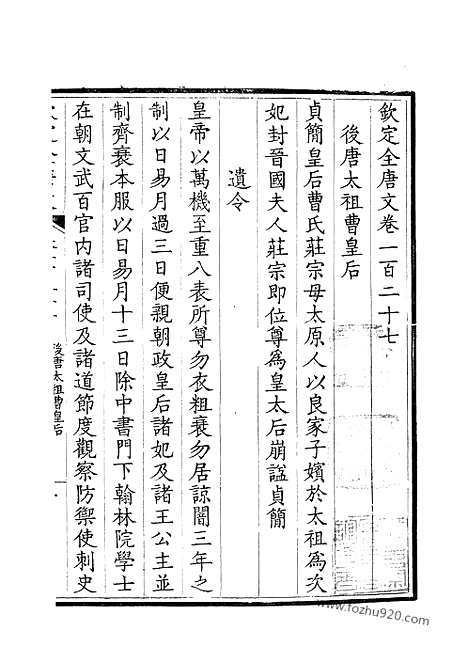 欽定全唐文卷一百二十七
後唐太祖曹皇后
貞簡皇后曹氏莊宗母太原人以良家子嬪於太祖為次
妃封晉國夫人莊宗即位尊為皇太后崩諡貞簡
遺令
皇帝以萬機至重八表所尊勿衣粗衰勿居諒闇三年之
制以日易月過三日便親朝政皇后諸妃及諸王公主並
制齊衰本服以日易月十三日除中書門下翰林院學士
在朝文武百官內諸司使及諸道節度觀察防禦使刺史
後唐太祖曹皇后
一
www.fozhu920.com